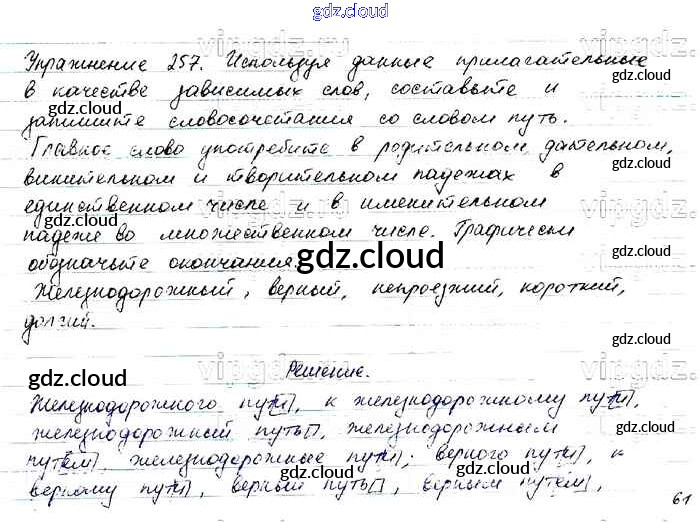 gdz.cloud
Упражнение 257. Используя данные прилагательные
в качестве зависимых слов, составьте и
запишите словосочетания со словом путь.
Главное слово употребите в родительном, дательном,
винительном и творительном падежах в
единственном числе и в именительном
падеже во множественном числе. Графически
обозначьте окончания.
Железнодорожный, верный, непроезжий, короткий,
долгий.
Решение.
Железнодорожного пути, к железнодорожному пути,
железнодорожный путь, железнодорожным
путем, железнодорожные пути; верного пути, к
верному пути, верный путь, верным путем,
61
gdz.cloud
gdz.cloud
gdz.cloud
gdz.cloud
gdz.cloud
gdz.cloud
gdz.cloud
gdz.cloud
gdz.cloud
gdz.cloud
gdz.cloud